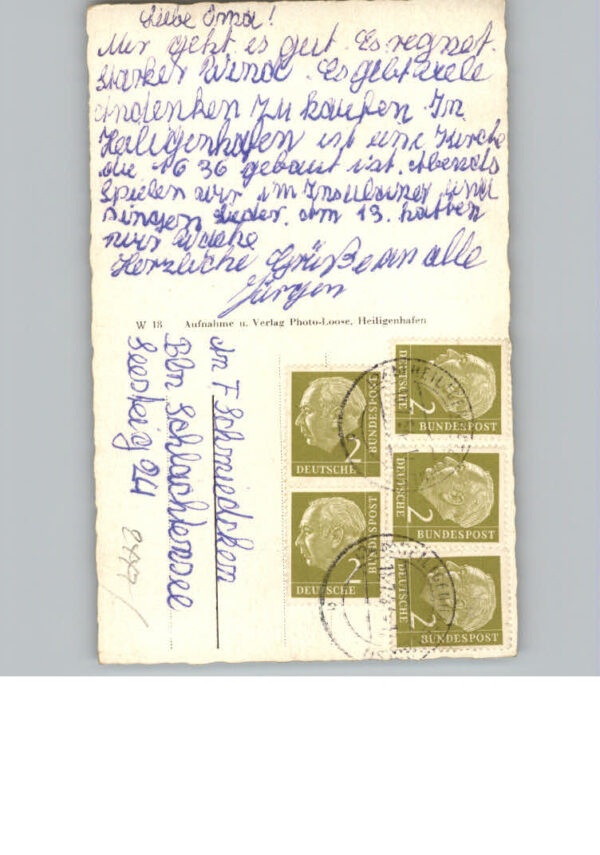 Liebe Oma!
Mir geht es gut. Es regnet.
Starker Wind. Es gibt viele
Andenken zu kaufen. In
Heiligenhafen ist eine Kirche
die 1636 gebaut ist. Abends
spielen wir im und
singen Lieder. Am 13. hatten
wir Wache
Herzliche Grüße an alle
Jürgen
W 18 Aufnahme u. Verlag Photo-Loose, Heiligenhafen
An F. Schmiedchen
Bln Schlachtensee
24
2477/
2
DEUTSCHE
BUNDESPOST
2
DEUTSCHE
BUNDESPOST
2
DEUTSCHE
BUNDESPOST
2
DEUTSCHE
BUNDESPOST
2
DEUTSCHE
BUNDESPOST